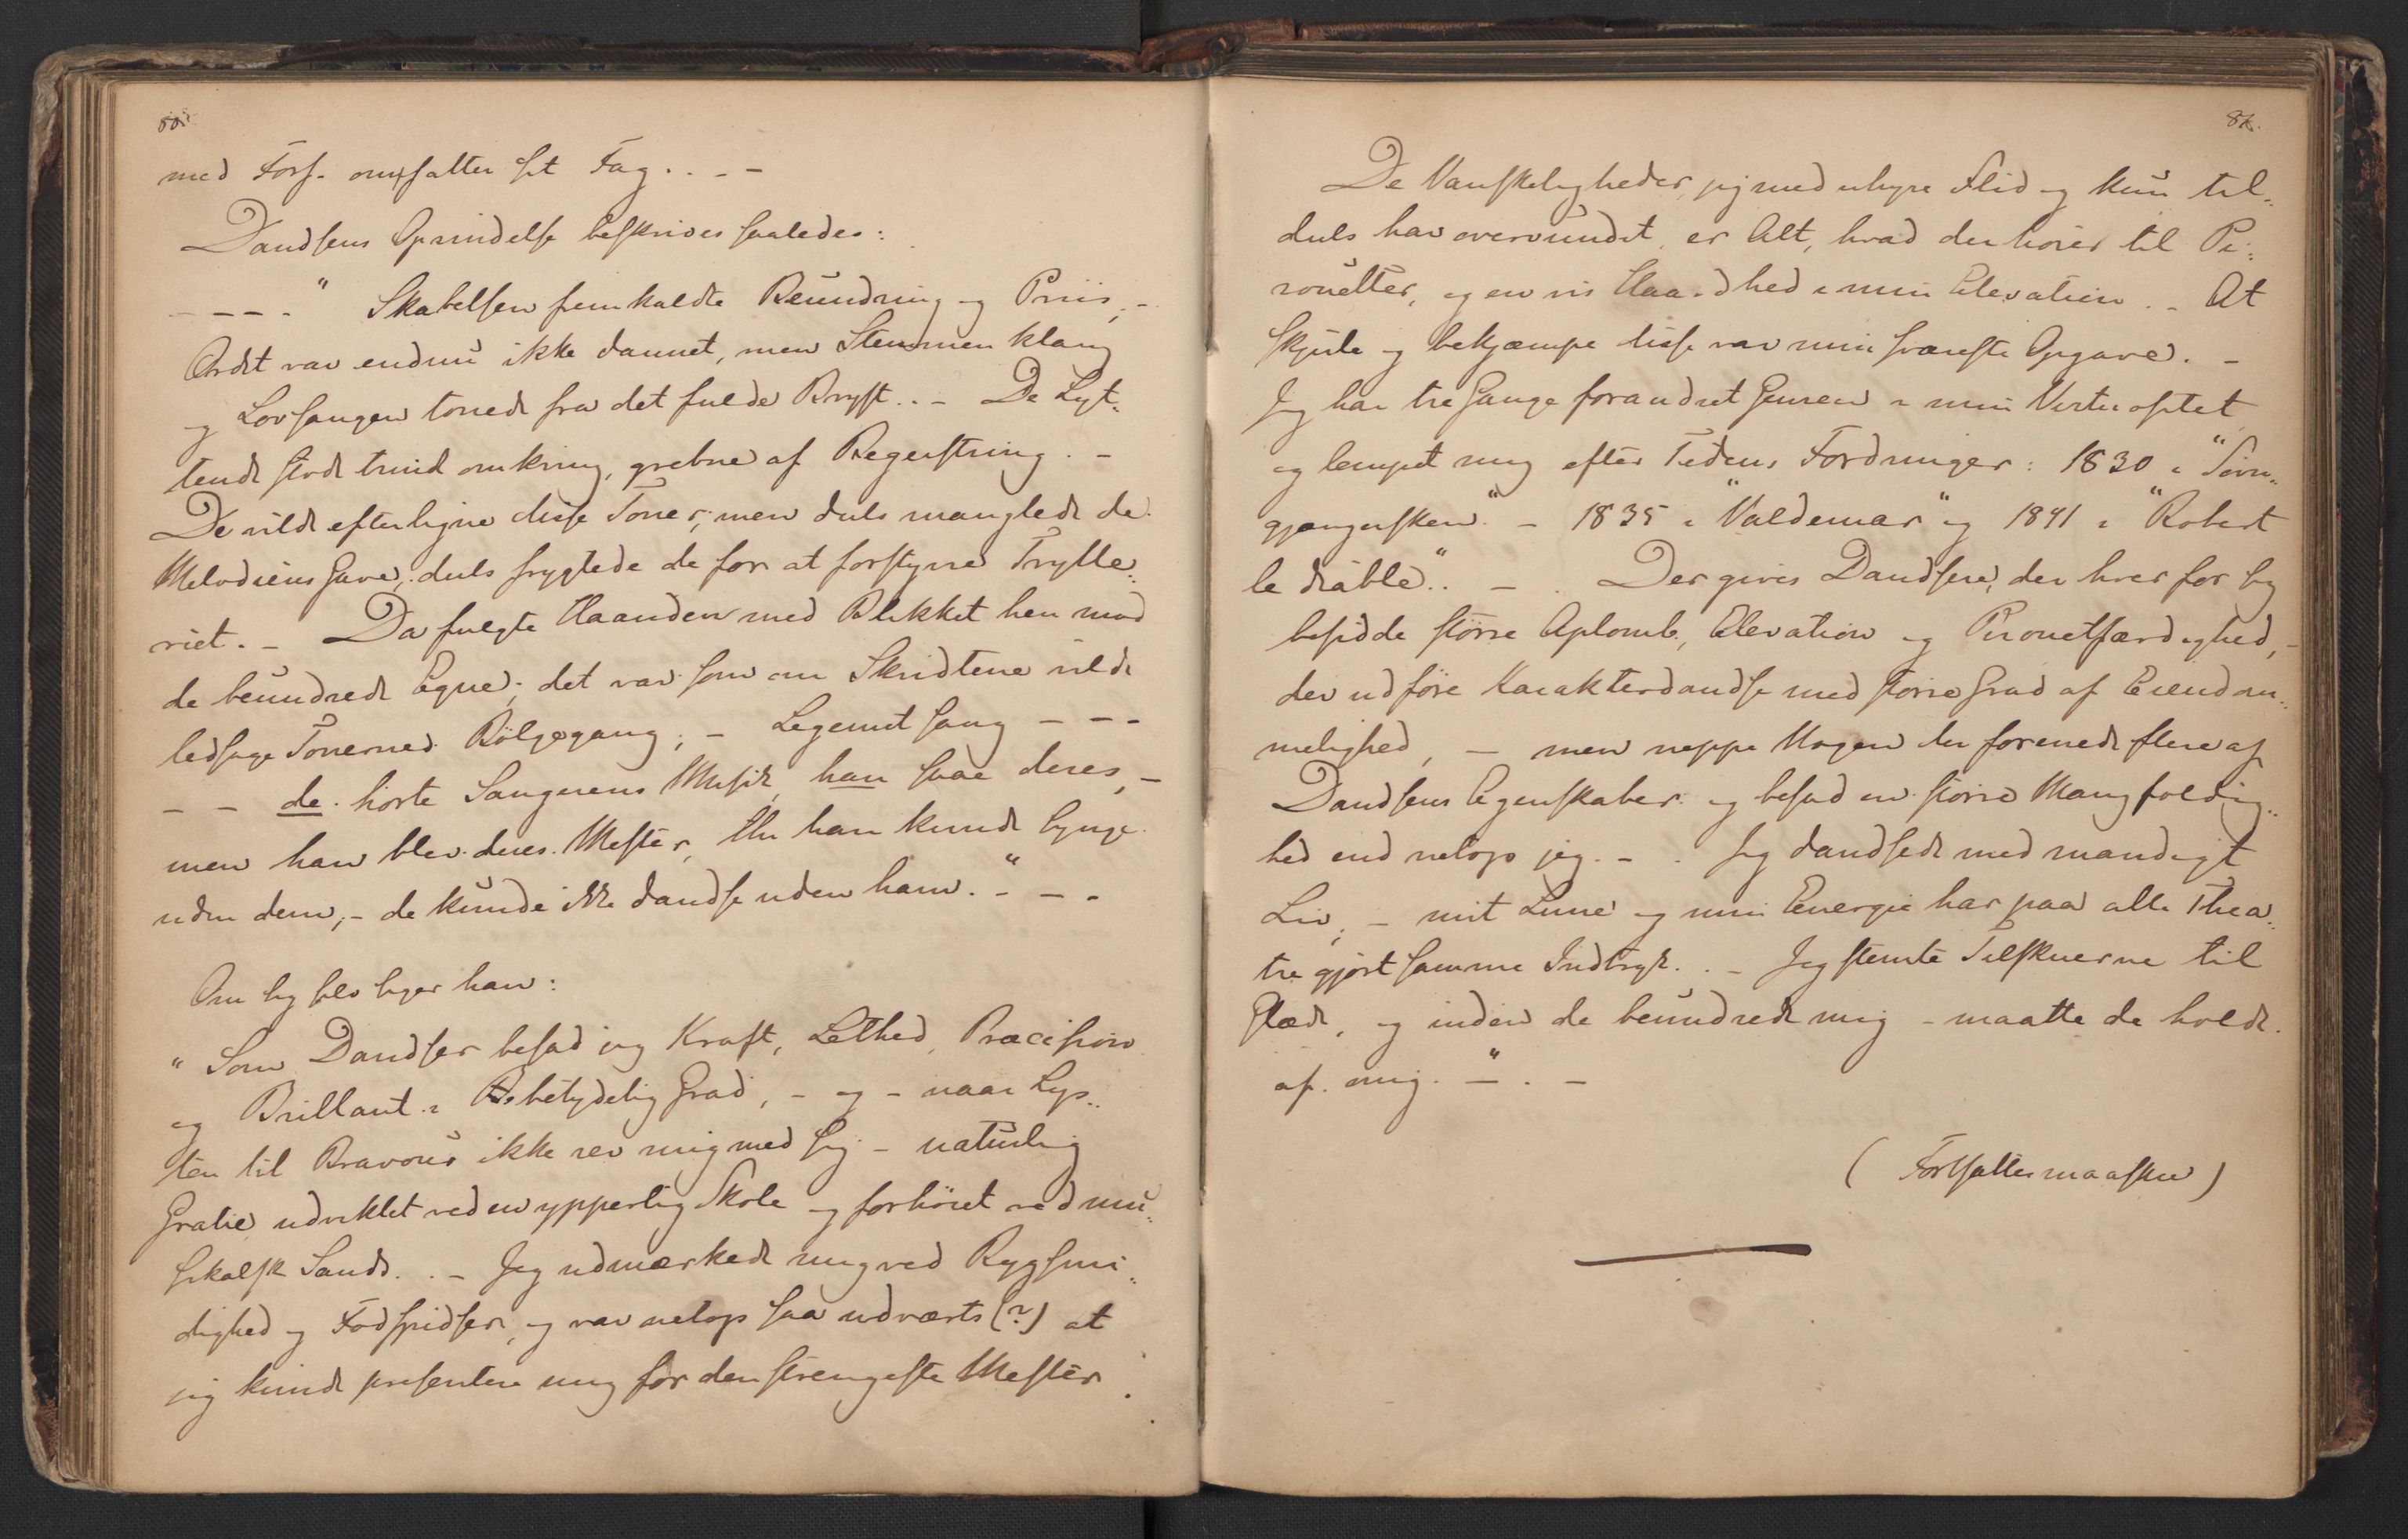 80.
med Forf. omfatter sit Fag. . . –
Dandsens Oprindelse beskrives saaledes:
– – – . " Skabelsen fremkaldte Beundring og Priis, –
Ordet var endnu ikke dannet, men Stemmen klang
og Lovsangen tonede fra det fulde Bryst. . – De Lyt-
tende stode trind omkring, grebne af Begeistring. –
De vilde efterligne disse Toner; men dels manglede de
Melodiens Gave, dels frygtede de for at forstyrre Trylle-
riet. – Da fulgte Haanden med Blikket hen mod
de beundrede Egne; det var som om Skridtene vilde
ledsage Tonernes Bølgegang; – Legemet sang – – –
– – de hørte Sangerens Musik, han saae deres, –
men han blev deres Mester, thi han kunde synge
uden dem, – de kunde ikke dandse uden ham. " – – .
Om sig selv siger han:
" Som Dandser besad jeg Kraft, Lethed, Præcision
og Brillant i betydelig Grad, – og – naar Lys-
ten til Bravour ikke rev mig med sig – naturlig
Gratie udviklet ved en ypperlig Skole og forhöiet ved mu-
sikalsk Sands. . – Jeg udmærkede mig ved Rygsmi-
dighed og Fodspidser, og var netop saa udværts (?) at
jeg kunde presentere mig for den strengeste Mester.
81.
De Vanskeligheder, jeg med uhyre Flid og kun til-
dels har overvundet, er Alt, hvad der hörer til Pi-
rouetter, og en vis Haardhed i min Elevation. . – At
skjule og bekjæmpe disse var min sværeste Opgave. –
Jeg har tre Gange forandret Genren i min Virtuositet
og lempet mig efter Tidens Fordringer: 1830 i "Søvn-
gjængersken" – 1835 i "Valdemar" og 1841 i "Robert
le diable". . – . Der gives Dandsere, der hver for sig
besidde større Aplomb, Elevation og Pirouetfærdighed, –
der udføre Karakterdandse med større Grad af Eiendom-
melighed, – men neppe Nogen der forenede flere af
Dandsens Egenskaber og besad en större Mangfoldig-
hed end netop jeg. – . Jeg dandsede med mandigt
Liv, – mit Lune og min Energie har paa alle Thea-
tre gjort samme Indtryk. . – Jeg stemte Tilskuerne til
Glæde, og inden de beundrede mig – maatte de holde
af mig. – " . –
( Fortsættes maaskee )